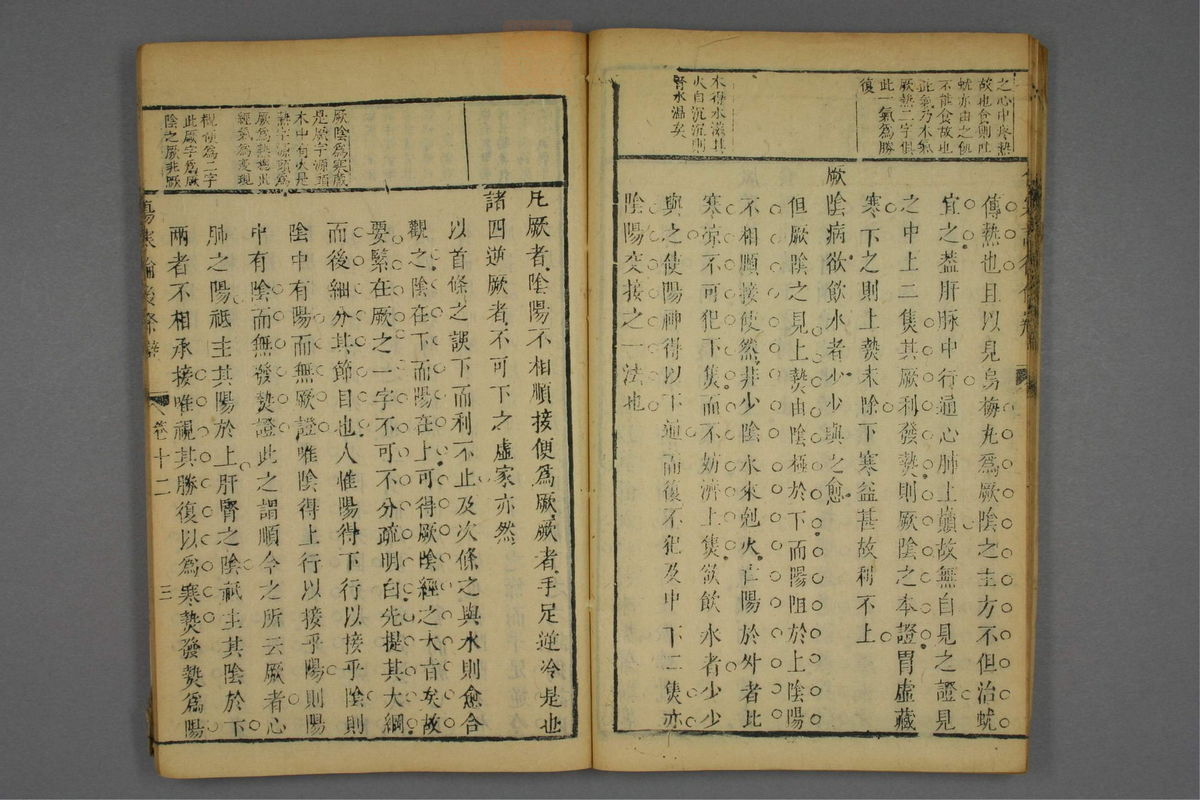 之心中疼熱
故也食則吐
蚘亦由之飢
不能食故也
此氣乃木氣
厥熱二字俱
此一氣為勝
復
木得水滋其
火自沉沉則
腎水溫矣
傳熱也且以見烏梅丸為厥陰之主方不但治蚘
宜之葢肝脉中行通心肺上巔故無自見之證見
之中上二焦其厥利發熱則厥陰之本證胃虛藏
寒下之則上熱未除下寒益甚故利不止
厥陰病欲飲水者少少與之愈
但厥陰之見上熱由陰極於下而陽阻於上陰陽
不相順接使然非少陰水來剋火亡陽於外者比
寒涼不可犯下焦而不妨濟上焦欲飲水者少少
與之使陽神得以下通而復不犯及中下二焦亦
陰陽交接之一法也
厥陰為寒藏
是厥字源頭
木中有火是
熱字源頭為
厥為熱總此
經氣為變現
概便為二字
此厥字為厥
陰之厥非厥
凡厥者陰陽不相順接便為厥厥者手足逆冷是也
諸四逆厥者不可下之虛家亦然
以首條之誤下而利不止及次條之與水則愈合
觀之陰在下而陽在上可得厥陰經之大旨矣故
要緊在厥之一字不可不分疏明白先提其大綱
而後細分其節目也人惟陽得下行以接乎陰則
陰中有陽而無厥證唯陰得上行以接乎陽則陽
中有陰而無發熱證此之謂順今之所云厥者心
肺之陽祗主其陽於上肝腎之陰祗主其陰於下
兩者不相承接唯視其勝復以為寒熱發熱為陽
傷寒論後條辨
卷十二
三